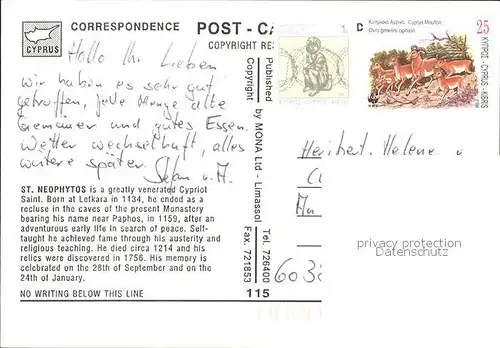 CORRESPONDENCE
CYPRUS
POST - CA
COPYRIGHT RES
Hallo Ihr Lieben
wir haben es sehr gut
getroffen, jede Menge alte
und gutes Essen.
Wetter wechselhaft, alles
weitere später.
Stefan u. M.
ST. NEOPHYTOS is a greatly venerated Cypriot
Saint. Born at Lefkara in 1134, he ended as a
recluse in the caves of the present Monastery
bearing his name near Paphos, in 1159, after an
adventurous early life in search of peace. Self-
taught he achieved fame through his austerity and
religious teaching. He died circa 1214 and his
relics were discovered in 1756. His memory is
celebrated on the 28th of September and on the
24th of January.
NO WRITING BELOW THIS LINE
115
Published by MONA Ltd - Limassol Tel. 726400
Copyright Fax. 721853
1
Κυπριακό Αγρινό. Cyprus Mouflon
Ovis gmelini ophion
25
ΚΥΠΡΟΣ - CYPRUS - KIBRIS
Heribert, Helene u
privacy protection
Oldthing